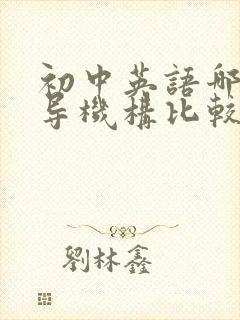 初中英語哪
导機構比較
劉林鑫